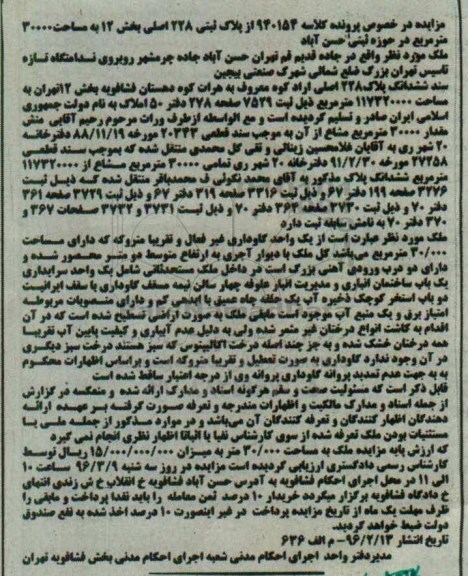 مزایده در خصوص پرونده کلاسه ۹۴۰۱۵۴ از پلاک ثبتی ۲۲۸ اصلی بخش ۱۲ به مساحت ۳۰۰۰۰
مترمربع در حوزه ثبتی حسن آباد
ملک مورد نظر واقع در جاده قدیم قم تهران حسن آباد جاده چرمشهر روبروی ندامتگاه تازه
تاسیس تهران بزرگ ضلع شمالی شهرک صنعتی پیچین
سند ششدانگ پلاک ۲۲۸ اصلی اراد کوه معروف به هرات کوه دهستان فشافویه بخش ۱۲ تهران به
مساحت ۱۱۷۳۲۰۰۰۰ مترمربع ذیل ثبت ۷۵۲۹ صفحه ۲۷۸ دفتر ۵۰ املاک به نام دولت جمهوری
اسلامی ایران صادر و تسلیم گردیده است و مع الواسطه ازطرف وراث مرحوم رحیم آقایی منش
مقدار ۳۰۰۰۰ مترمربع مشاع از آن به موجب سند قطعی ۲۰۳۴۳ مورخه ۸۸/۱۱/۱۹ دفترخانه
۲۰ شهر ری به آقایان غلامحسین زینالی و تقی گل محمدی منتقل شده که بموجب سند قطعی
۲۷۲۵۸ مورخه ۹۱/۲/۳۰ دفترخانه ۲۰ شهر ری تمامی ۳۰۰۰۰ مترمربع مشاع از ۱۱۷۳۲۰۰۰۰
مترمربع ششدانگ پلاک مذکور به آقای محمد نکوئی ف محمدباقر منتقل شده که ذیل ثبت
۳۲۷۶ صفحه ۱۹۹ دفتر ۶۷ و ذیل ثبت ۳۳۱۶ صفحه ۳۱۹ دفتر ۶۷ و ذیل ثبت ۳۷۲۹ صفحه ۳۶۱
دفتر ۷۰ و ذیل ثبت ۳۷۳۰ صفحه ۳۶۴ دفتر ۷۰ و ذیل ثبت ۳۷۳۱ و ۳۷۳۲ صفحات ۳۶۷ و
۳۷۰ دفتر ۷۰ به نامش سابقه ثبت دارد
ملک مورد نظر عبارت است از یک واحد گاوداری غیر فعال و تقریبا متروکه که دارای مساحت
۳۰/۰۰۰ مترمربع می‌باشد کل ملک با دیوار آجری به ارتفاع متوسط دو متر محصور شده و
دارای دو درب ورودی آهنی بزرگ است در داخل ملک مستحدثاتی شامل یک واحد سرایداری
یک باب ساختمان اداری و مدیریت انبار علوفه چهار سالن نیمه مسقف گاوداری با سقف ایرانیت
دو باب استخر کوچک ذخیره آب یک حلقه چاه عمیق با آبدهی کم و دارای منصوبات مربوطه
امتیاز برق و یک منبع آب موجود است مابقی ملک به صورت اراضی تسطیح شده است که در آن
اقدام به کاشت انواع درختان غیر مثمر شده ولی به دلیل عدم آبیاری و کیفیت پایین آب تقریبا
همه درختان خشک شده و به جز چند اصله درخت اکالیپتوس که سبز هستند درخت سبز دیگری
در آن وجود ندارد گاوداری به صورت تعطیل و تقریبا متروکه است و براساس اظهارات محکوم
به به جهت عدم تمدید پروانه گاوداری پروانه وی از درجه اعتبار ساقط شده است
قابل ذکر است که مسئولیت صحت و سقم هرگونه اسناد و مدارک ارائه شده و منعکسه در گزارش
از جمله اسناد و مدارک مالکیت و اظهارات مندرجه و تعرفه صورت گرفته بر عهده ارائه
دهندگان اظهار کنندگان و تعرفه کنندگان آن می‌باشد و در موارد مذکور از جمله ملی یا
مستثنیات بودن ملک تعرفه شده از سوی کارشناس نفیا یا اثباتا اظهار نظری انجام نمی گیرد
که ارزش پایه مزایده ملک به مساحت ۳۰/۰۰۰ متر به میزان ۱۵/۰۰۰/۰۰۰/۰۰۰ ریال توسط
کارشناس رسمی دادگستری ارزیابی گردیده است مزایده در روز سه شنبه ۹۶/۳/۹ ساعت ۱۰
الی ۱۱ در محل اجرای احکام فشافویه به آدرس حسن آباد فشافویه خ انقلاب خ ش زندی انتهای
خ دادگاه فشافویه برگزار میگردد خریدار ۱۰ درصد ثمن معامله را باید نقدا پرداخت و مابقی را
ظرف مهلت یک ماه از تاریخ مزایده پرداخت در غیر اینصورت ۱۰ درصد اخذ شده به نفع صندوق
دولت ضبط خواهد گردید.
تاریخ انتشار ۹۶/۲/۱۳- م الف ۶۳۶
مدیردفتر واحد اجرای احکام مدنی شعبه اجرای احکام مدنی بخش فشافویه تهران